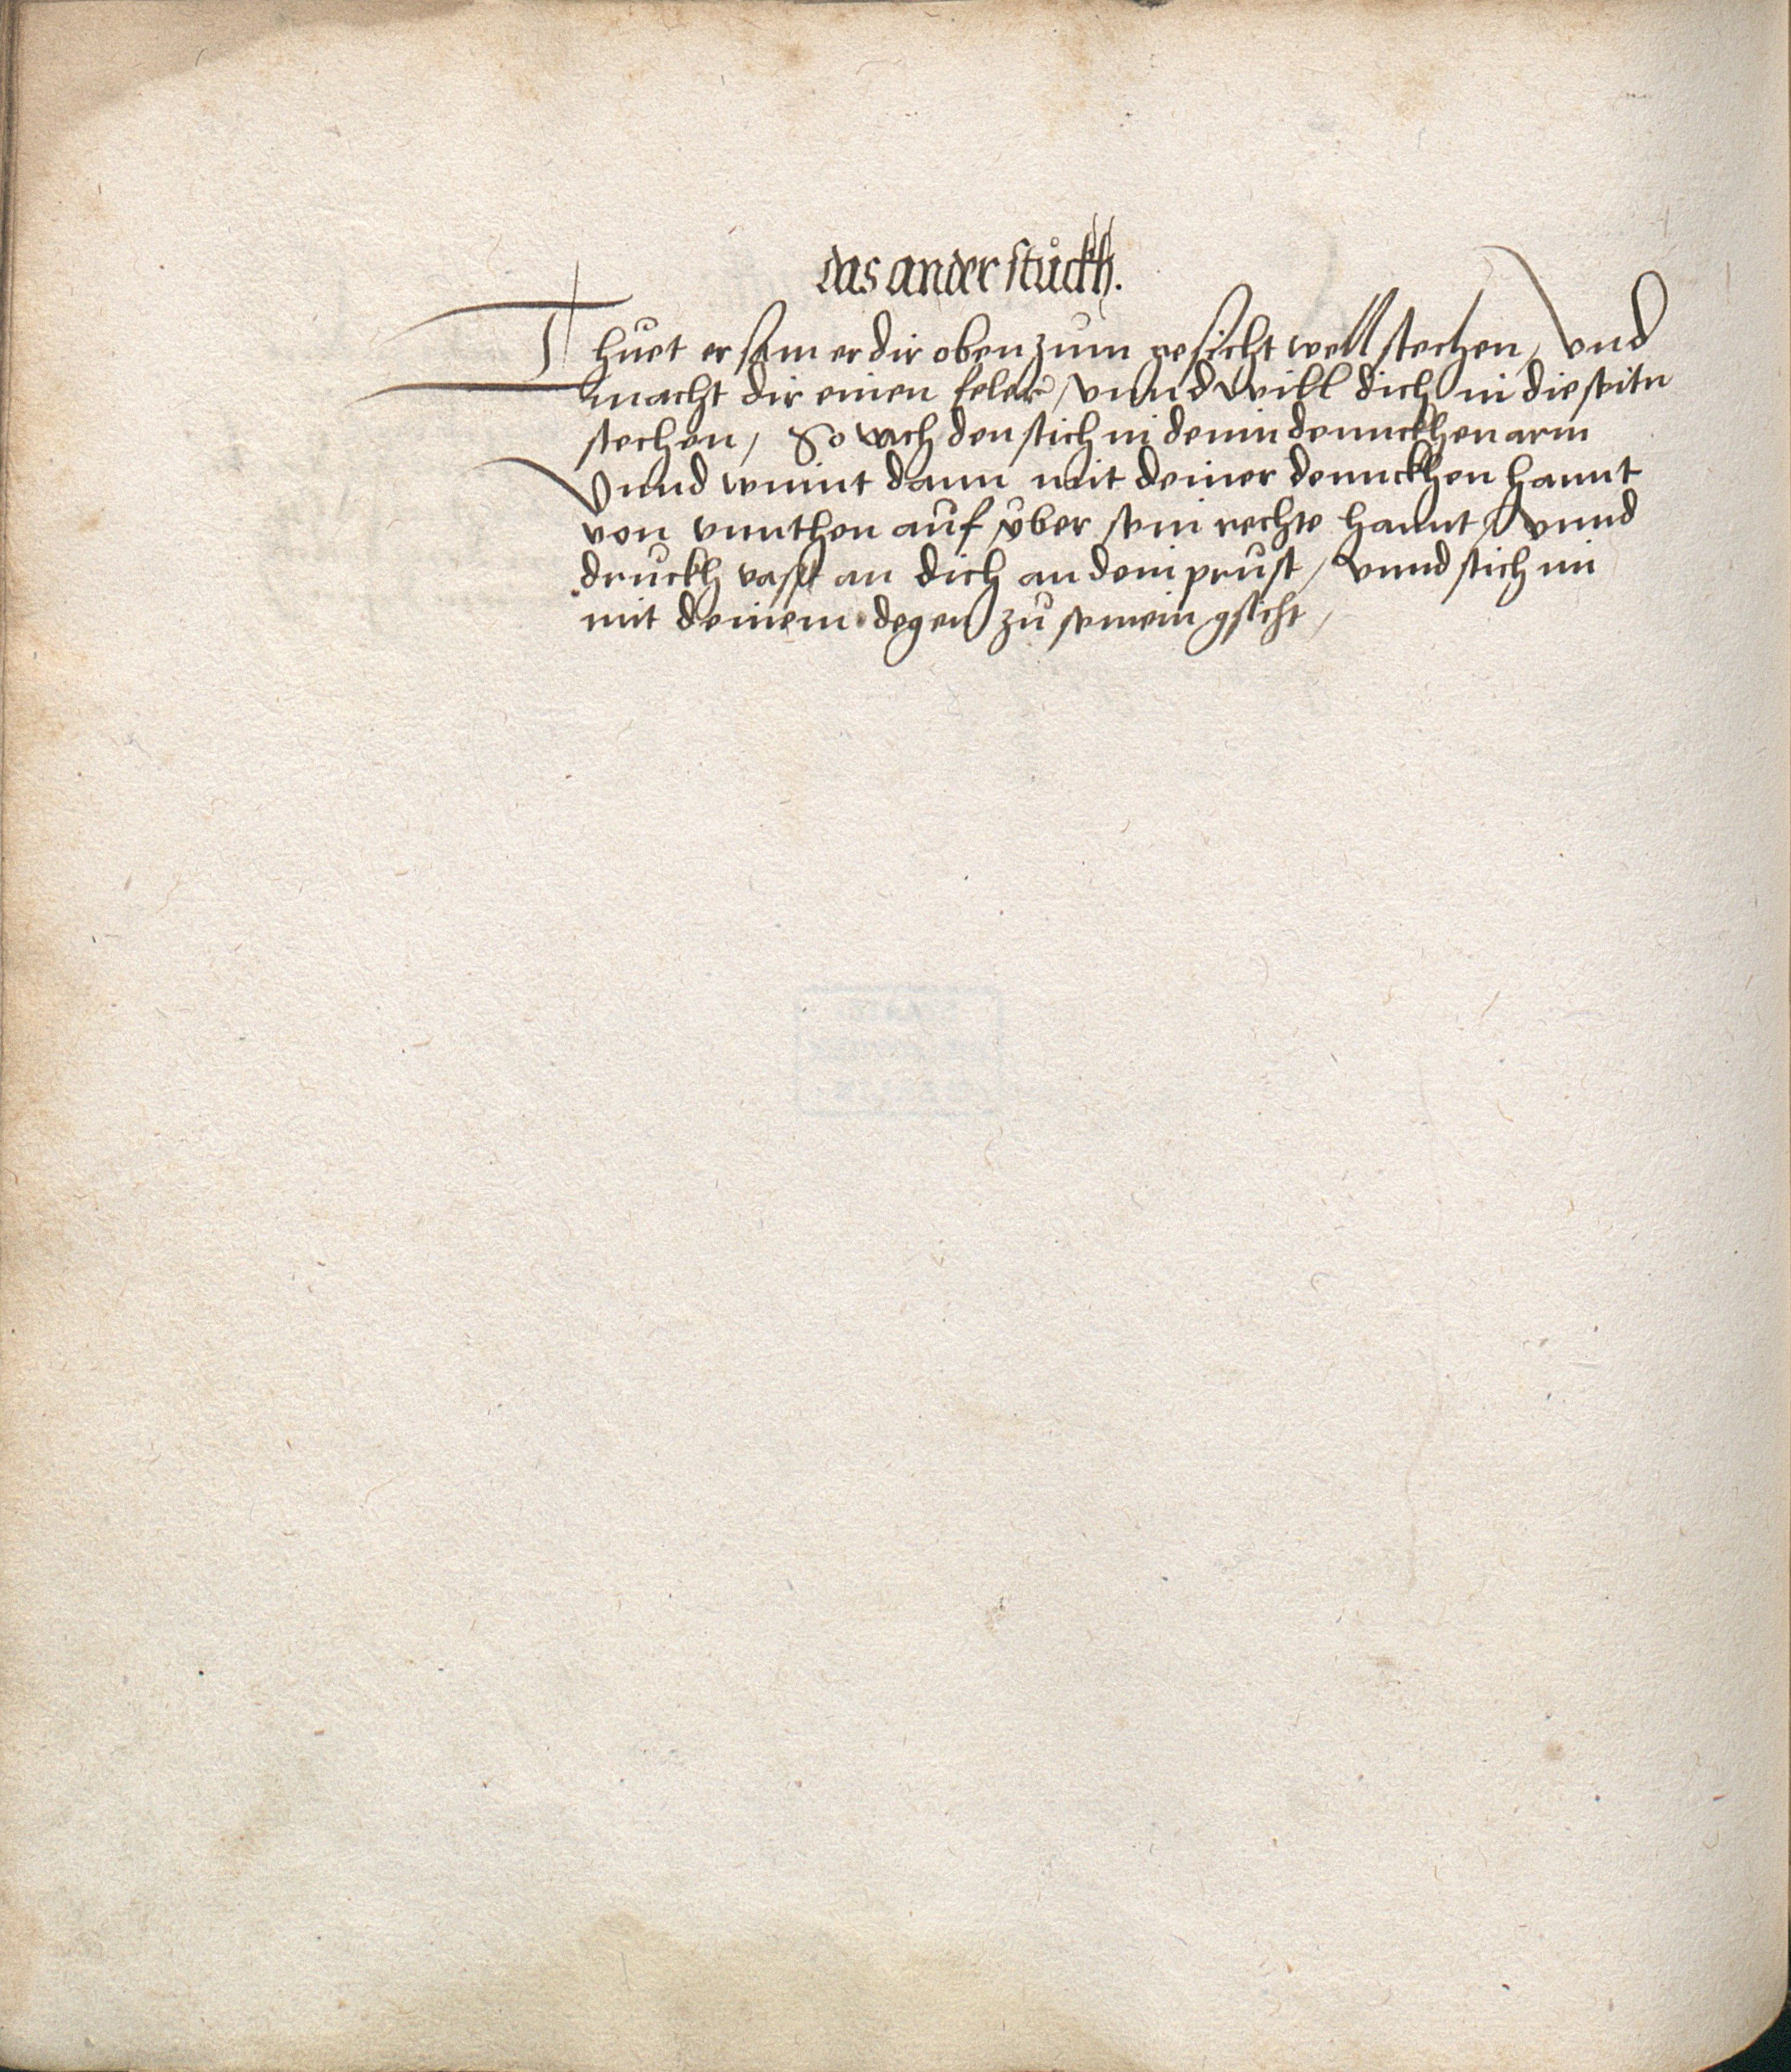 das ander stůckh.
Thuet er sam er dir oben zum gesicht well stechen, Vnd
macht dir einen feler, Vnnd will dich in die seitn
stechen, So vach den stich in dein dennckhen arm
Vnnd wint dann mit deiner dennckhen hannt
von vnnthen auf vber sein rechte hannt, Vnnd
druckh vasst an dich an dein prust, Vnnd stich im
mit deinem degen zu seinem gsicht,